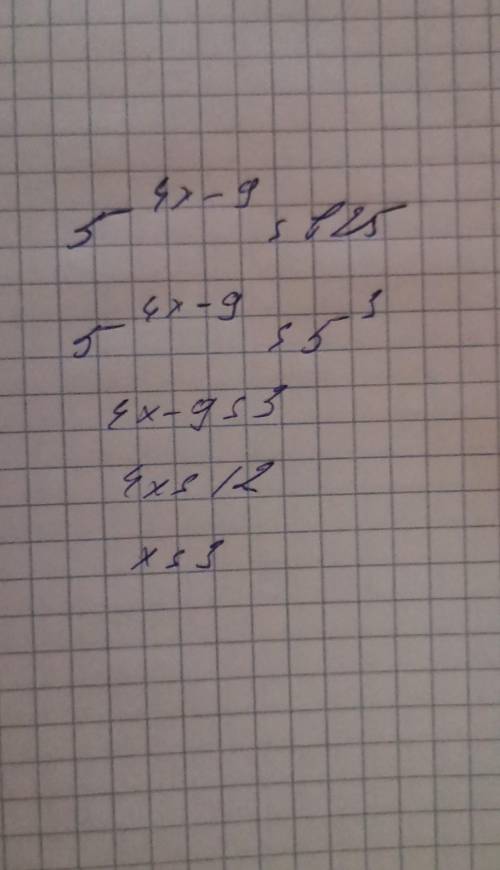 5^{4x-9} = 125
5^{4x-9} = 5^3
4x-9=3
4x=12
x=3